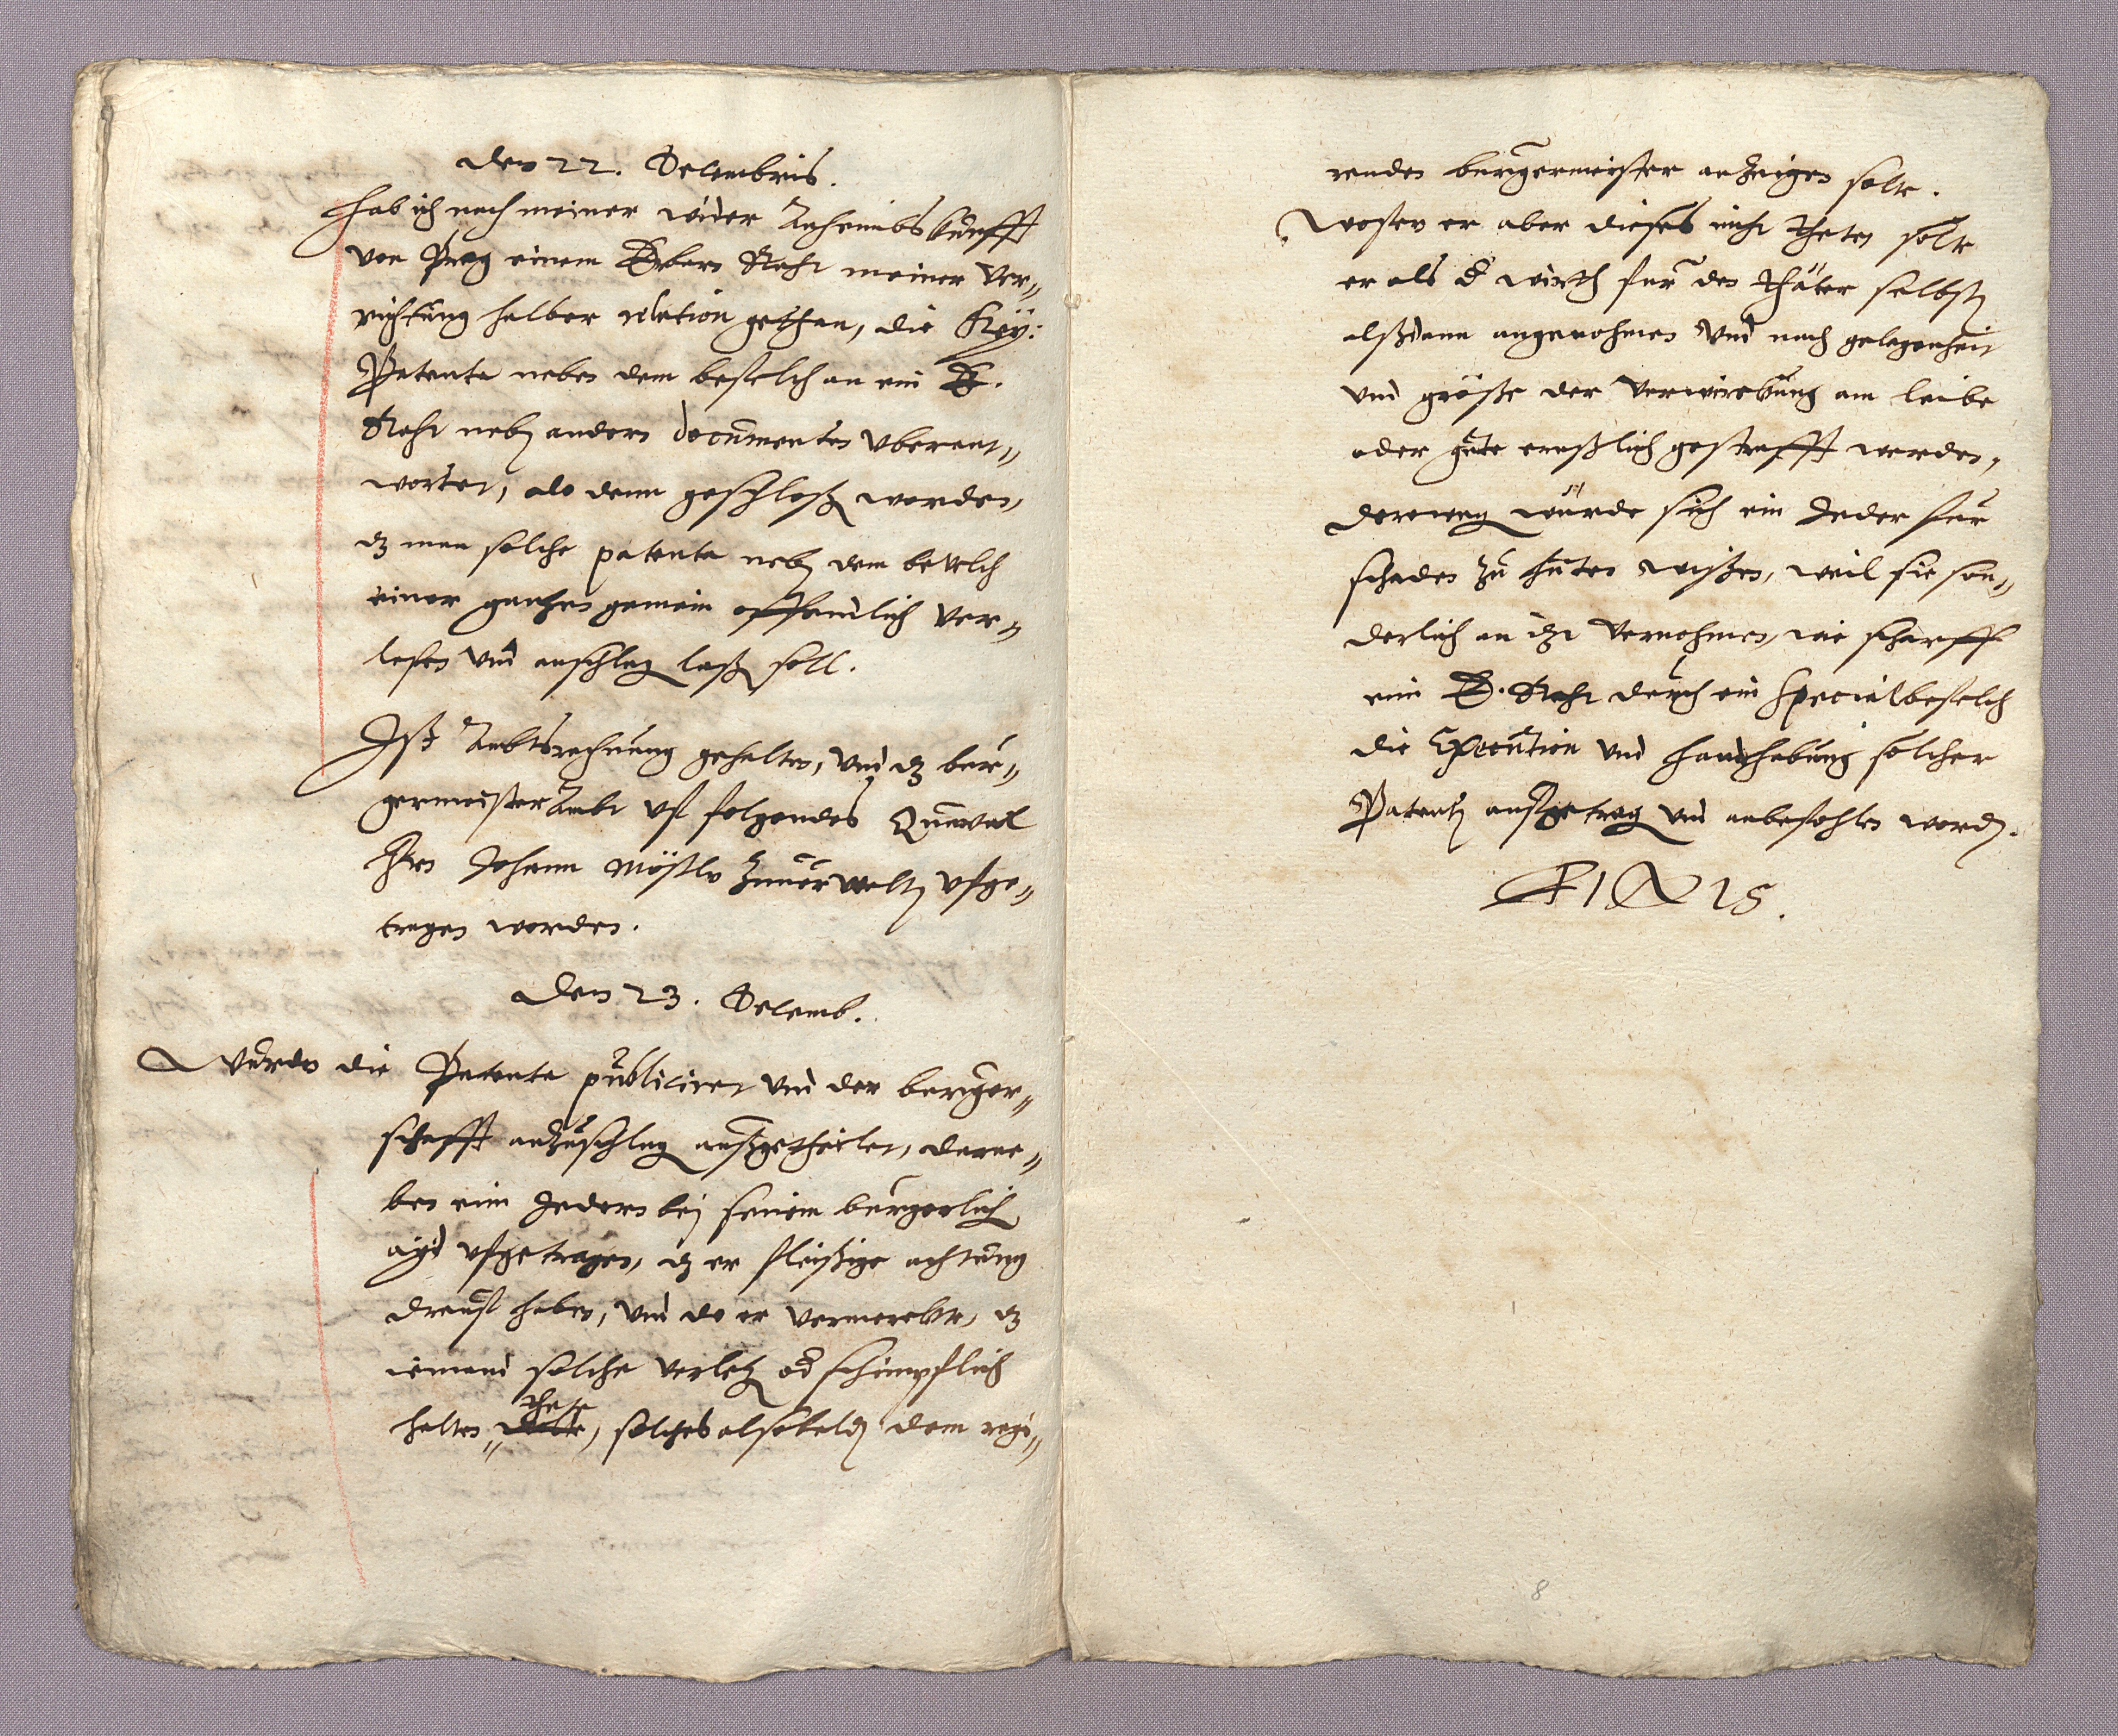 den 22. Decembris.
Hab ich nach meiner wider Anheimbskunfft
von Prag einem Erbarn Raht meiner ver„
richtung halber relation gethan, die Key:
Patenta neben dem befelch an ein E.
Raht nebn andern documenten uberant„
wortet, alo denn geschloßn worden,
dz man solche patenta nebn dem bevelch
einer gantzen gemein offendlich ver„
lesen und anschlagn laßn soll.
Ist Ambtsrechnung gehalten, und dz bur„
germeister Ambt uf folgendes Quartal
Hrn Johann
tragen worden.
den 23. Decemb.
Wurden die Patenta publiciret und der burger„
schafft anzuschlagn außgetheilet, darne„
ben eim Jedern bej seinem burgerlichn
ayd ufgetragen, dz er fleißige achtung
drauf haben, und do er vermerckte, dz
iemand solche verletzn od schimpflich
halten thete, solches alsobaldn dem regi„
renden burgermeister anzeigen solte.
Wofern er aber dieses nicht theten solte
er als d wirth fur den thäter selbstn
alßdann angenohmen und nach gelegenheit
und größe der verwirckung am leibe
oder gute ernstlich gestrafft werden,
derowegn würde sich ein Jeder fur
schaden zu huten wißen, weil sie son„
derlich an itzt vernohmen, wie scharff
eim E. Raht durch ein Specialbefelch
die Execution und handhabung solcher
Patentn aufgetragn und anbefohlen wordn.
FINIS.
8